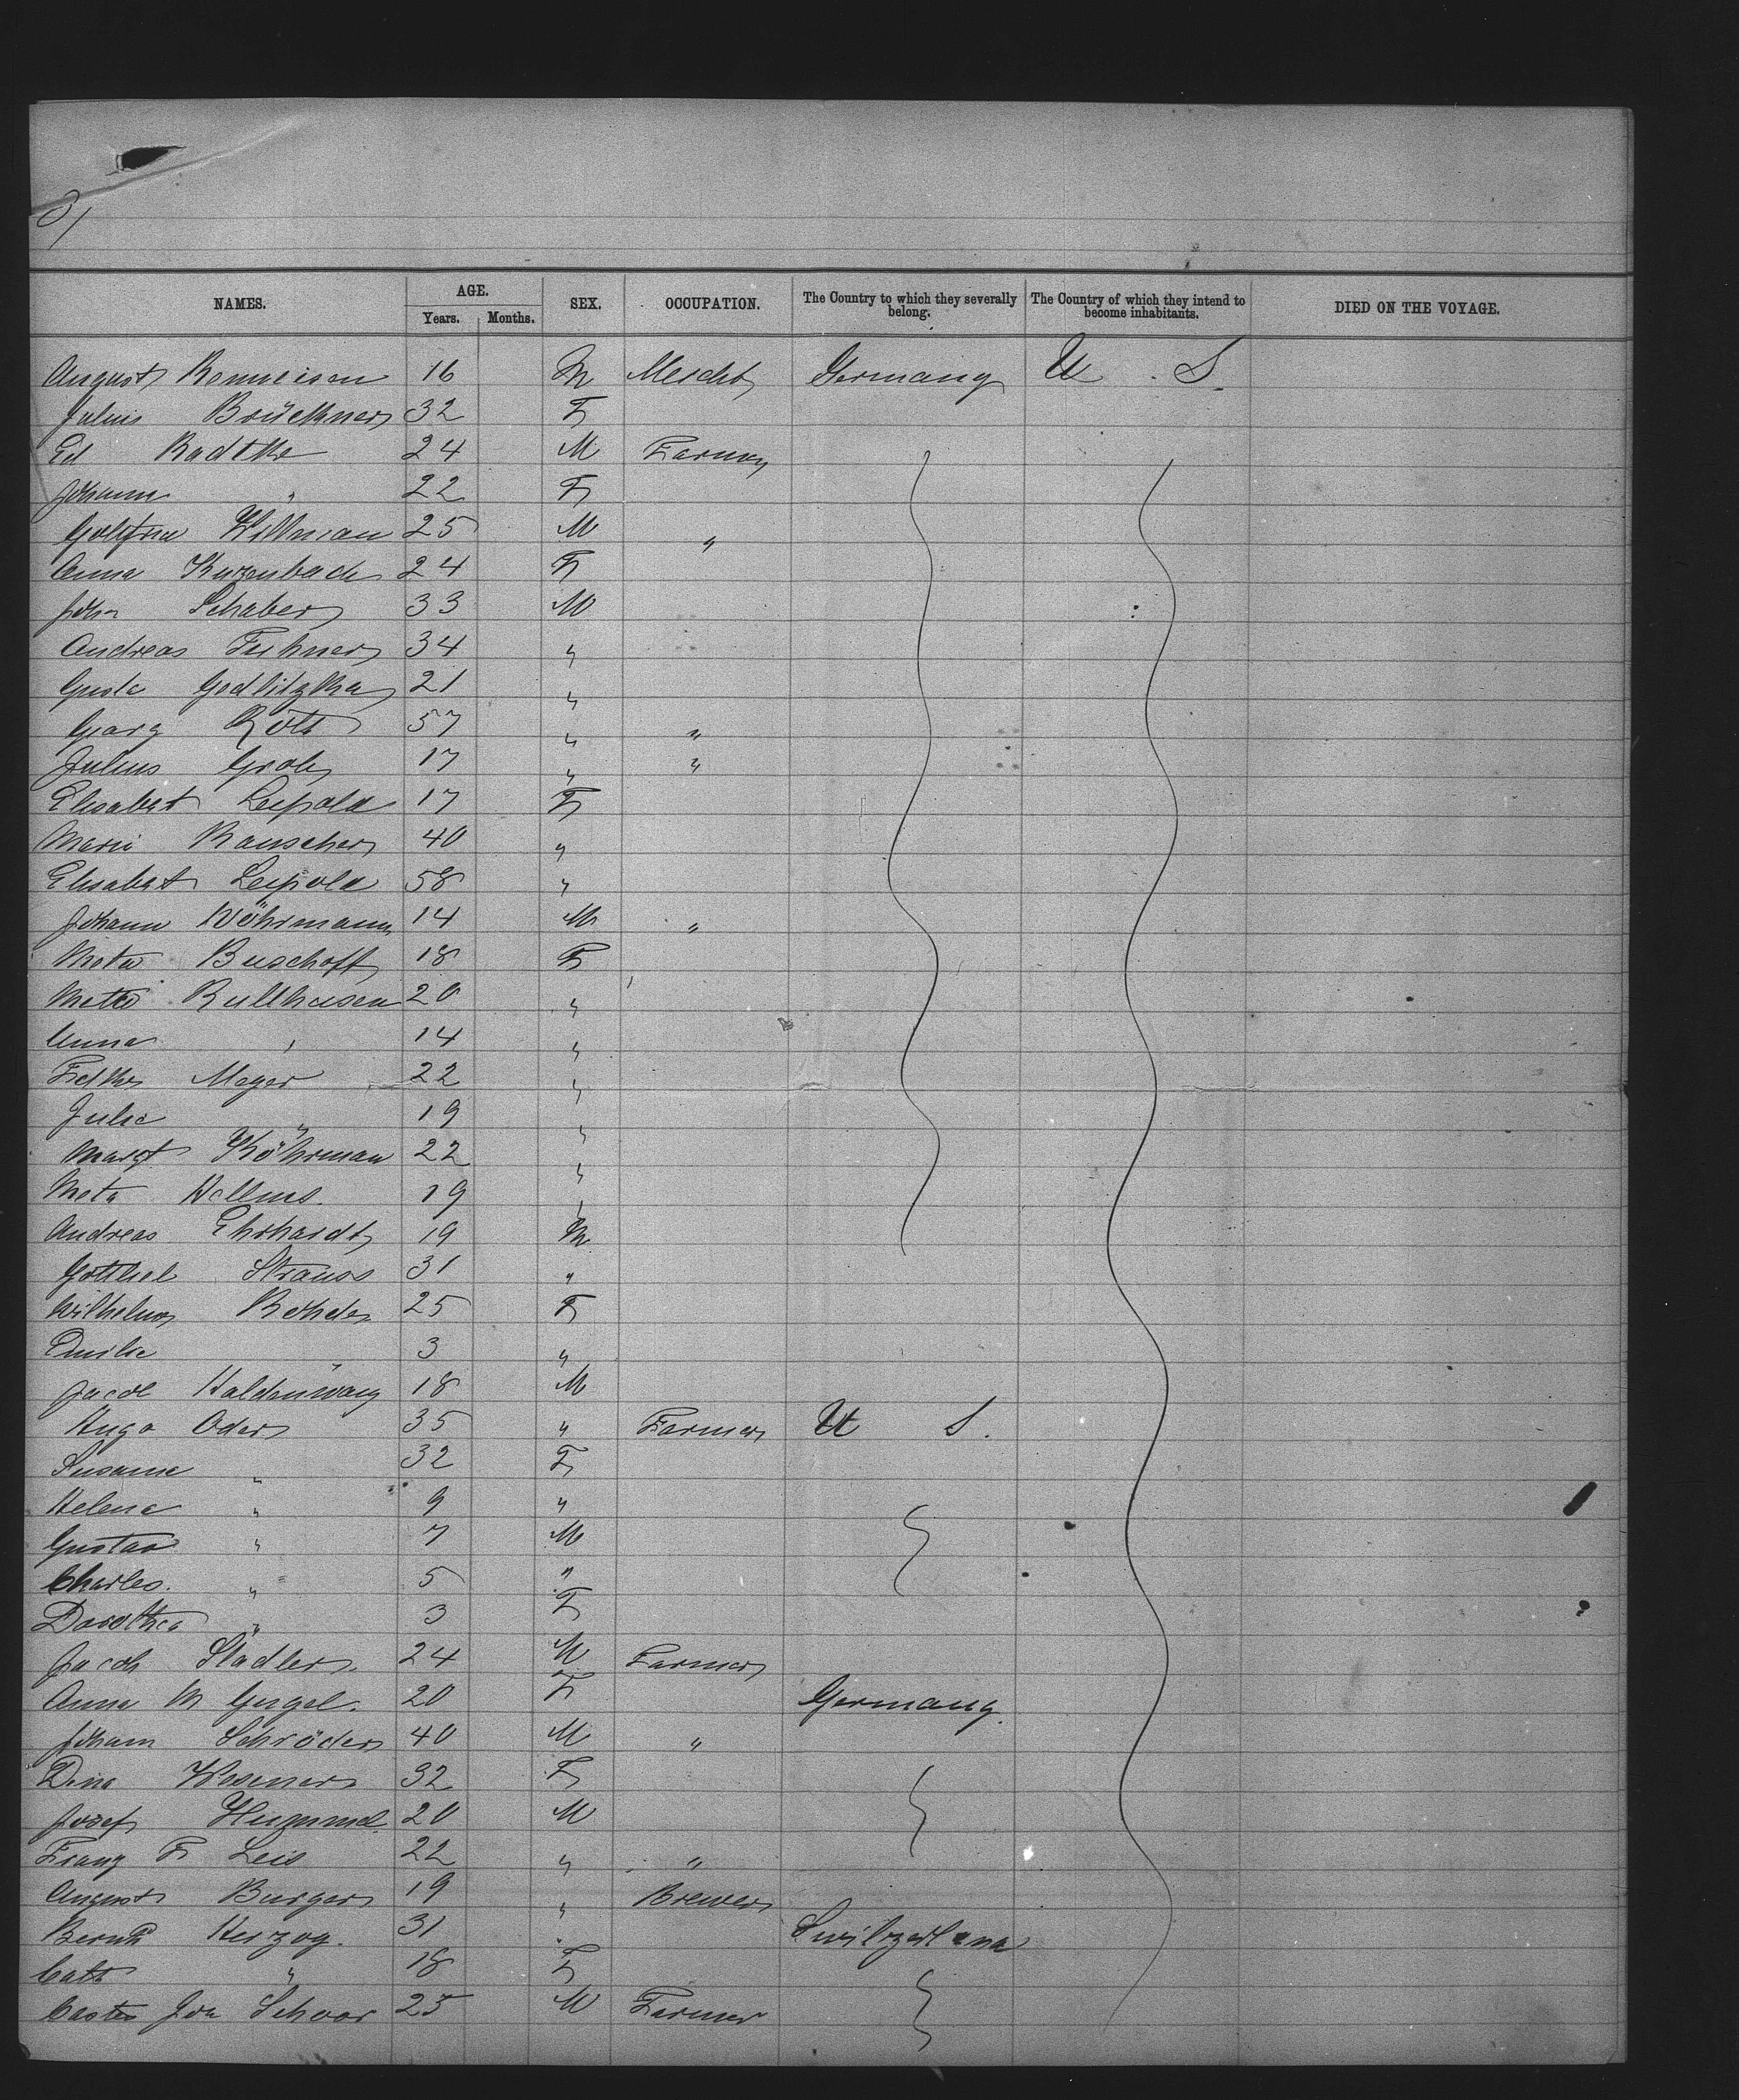 NAMES. AGE. SEX. OCCUPATION. The Country to which they severally belong. The Country of which they intend to become inhabitants. DIED ON THE VOYAGE.
Years. Months.
August 16 M Mercht Germany U. S.
Julius Brückner 32 F
Ed Radtke 24 M Farmer
Johann " 22 F
Willman 25 M "
Anna Kurzenbach 24 F
John Schaber 33 M
Andreas 34 "
Godlitzka 21 "
Georg 57 " "
Julius Grob 17 " "
Elisabet Leipold 17 F
Marie Rauscher 40 "
Elisabet Leipold 58 "
Johann Wöhrmann 14 M "
Meta Buschoff 18 F
Meta 20 "
Anna " 14 "
Meyer 22 "
Julie " 19 "
Margt Köhrman 22 "
Meta 19 "
Andreas Ehrhardt 19 M
Gottlieb Strauss 31 "
Rohde 25 F
Emilie " 3 "
Jacob Haldenwang 18 M
Hugo Oder 35 " Farmer U S.
Susanne " 32 F
Helene " 9 "
Gustav " 7 M
Charles. " 5 "
Dorothea " 3 F
Jacob Stadler. 24 M Farmer
Anna M 20 F Germany.
Johann Schröder 40 M "
Dina Wesener 32 F
Josef Hummel 20 M
Franz F Leis 22 " "
August Burger 19 " Brewer
Bernh Herzog. 31 " Switzerland
Cath " 18 F
Schoor 25 M Farmer